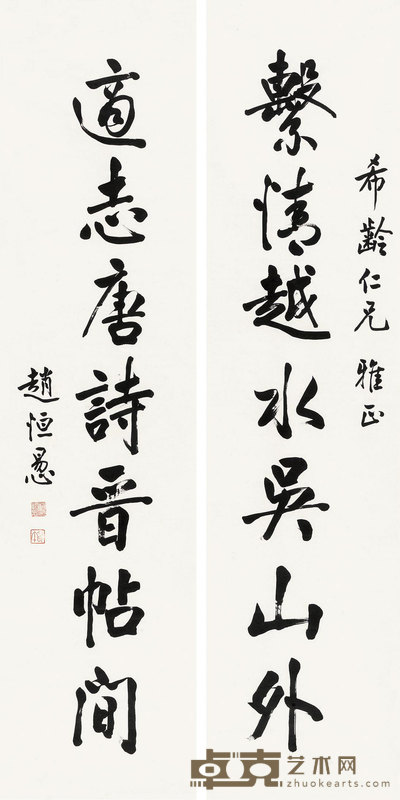 希齡仁兄 雅正
繫情越水吳山外
適志唐詩晉帖間
趙恒惖
卓克艺术网
zhuokearts.com